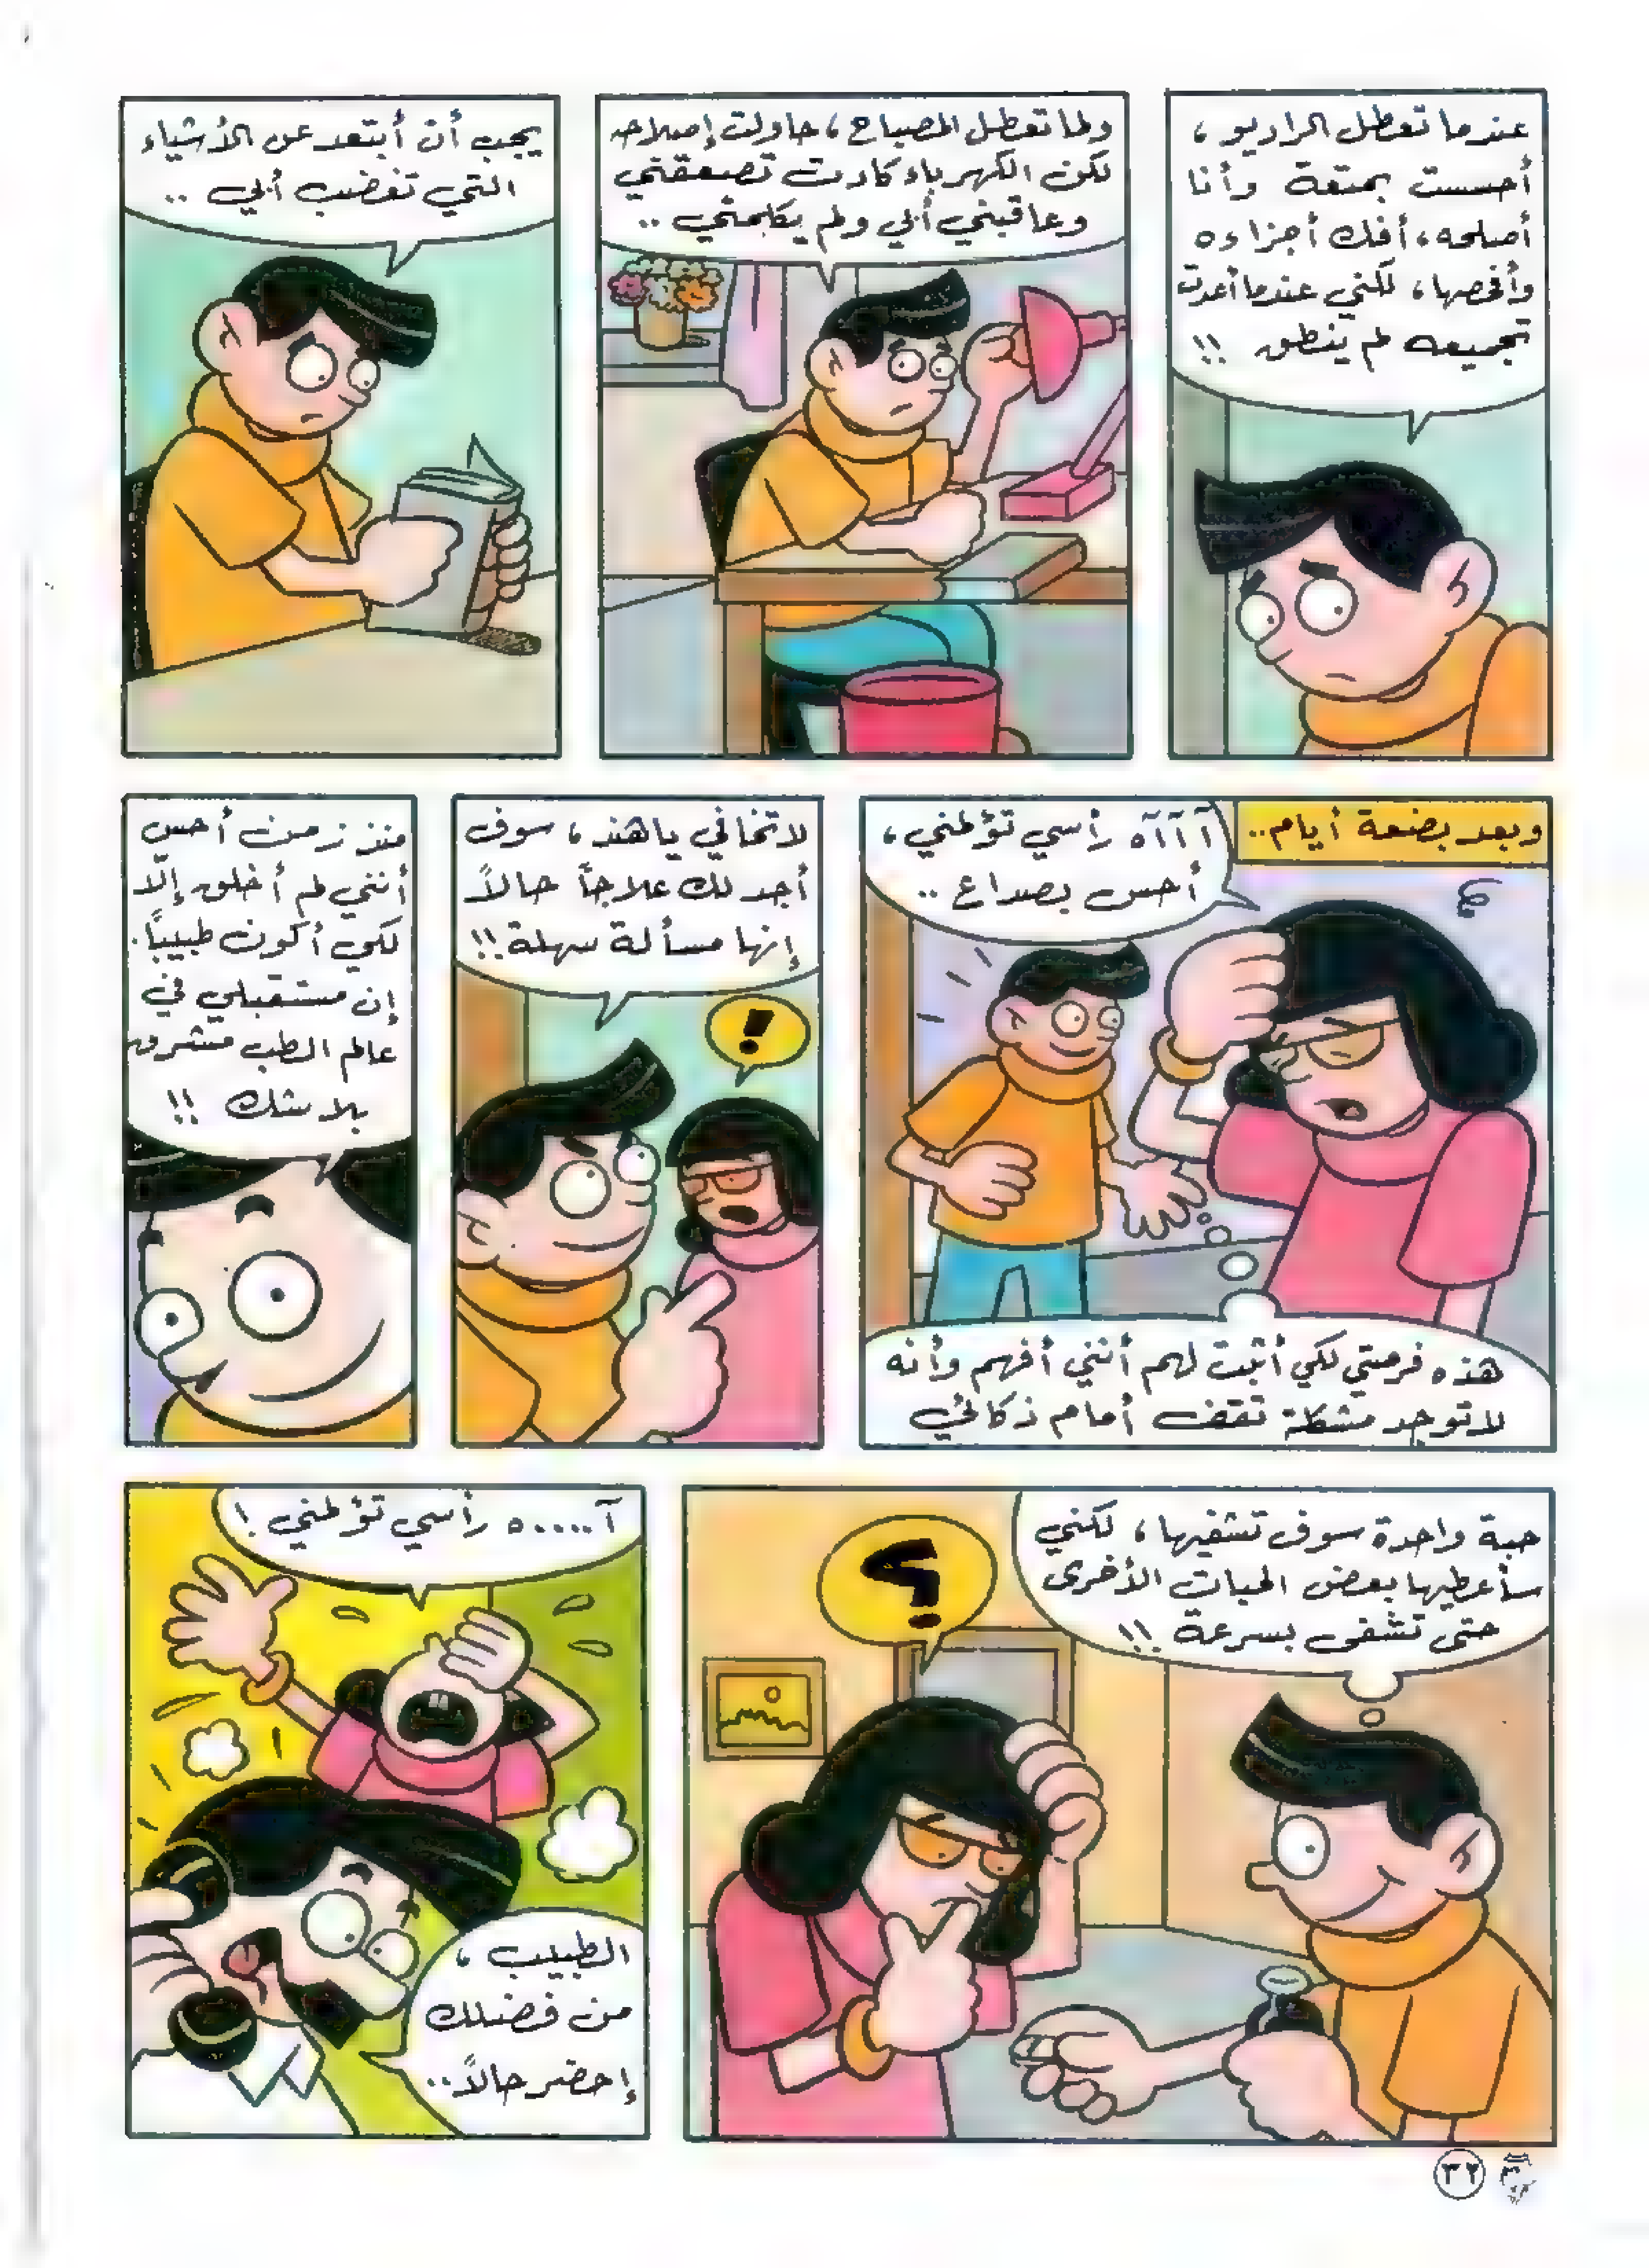 عندما تعطل الراديو،
أحسست بمتعة وأنا
أصلحه، أفك أجزاءه
وأفحصها، لكني عندما أعدت
تجميعه لم ينطق !!
ولما تعطل المصباح، حاولت إصلاحه
لكن الكهرباء كادت تصعقني
وعاقبني أبي ولم يكلمني ..
يجب أن أبتعد عن الأشياء
التي تغضب أبي ..
وبعد بضعة أيام..
آآآه رأسي تؤلمني،
أحس بصداع ..
هذه فرصتي لكي أثبت لهم أنني أفهم وأنه
لاتوجد مشكلة تقف أمام ذكائي
لا تخافي ياهند، سوف
أجد لك علاجاً حالاً
إنها مسألة سهلة!!
!
منذ زمن أحس
أنني لم أخلق إلّا
لكي أكون طبيباً.
إن مستقبلي في
عالم الطب مشرق
بلا شك !!
حبة واحدة سوف تشفيها، لكنني
سأعطيها بعض الحبات الأخرى
حتى تشفى بسرعة !!
؟
آ.....ه رأسي تؤلمني !
الطبيب،
من فضلك
إحضر حالاً..
٣٢